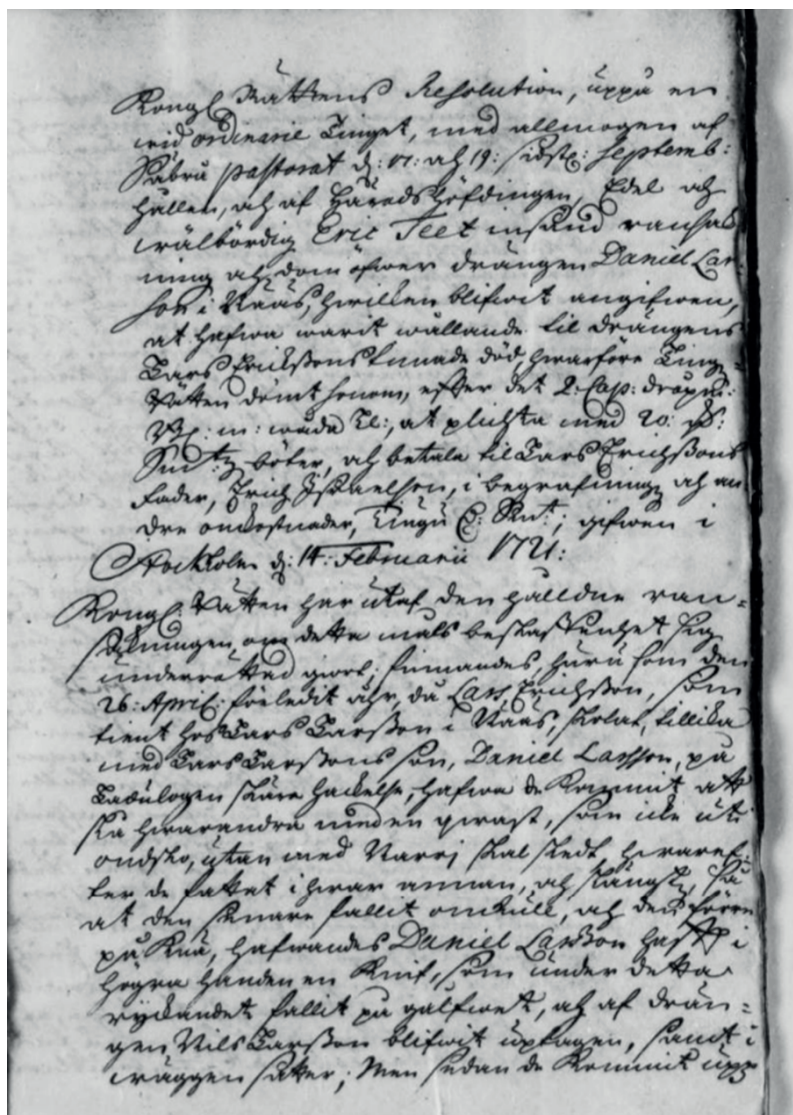 Kongl. Rättens Resolution, uppå en
wid ordinarie Tinget, med allmogen af
Säbrå pastorat d: 17: och 19: sidstl: Septemb:
hållen, och af Häradshöfdingen, Edel och
wälbördig Eric Teet insänd ransak
ning och dom öfwer drängen Daniel Lar
son i Nääs, hwilken blifwit angifwen,
at hafwa warit wållande til drängens
Lars Erikssons timade död, hwarföre Tings
Rätten dömt honom, efter det 2. Cap: dråpm:
B: m: wåda Kl:, at plichta med 20: d:
Smt:z böter, och betala til Lars Erichssons
fader, Erich Israelson, i begrafning och an
dre omkostnader, Tiugu d: Smt:; gifwen i
Stockholm d: 14: Februarii 1721:
Kongl. Rätten har utaf den håldne ran=
sakningen om detta måls beskaffenhet sig
underrättad giort, finnandes, huru som den
26: April: förledit åhr, då Lars Erichsson, som
tient hos Lars Larsson i Nääs, skolat, tillika
med Lars Larssons son, Daniel Larsson, på
Ladulogen skära hackelse, hafwa de kommit att
slå hwarandra med en qwast, som icke uti
ondsko, utan med Narri skal skedt, hwaref=
ter de fattat i hwar annan, och slängt, så
at den senare fallit omkull, och den förre
på knä, hafwandes Daniel Larsson haft i
högra handen en knif, som under detta
ryckandet fallit på gålfwet, och af drän=
gen Nils Larsson blifwit uptagen, samt i
wäggen satter; Men sedan de kommit upp